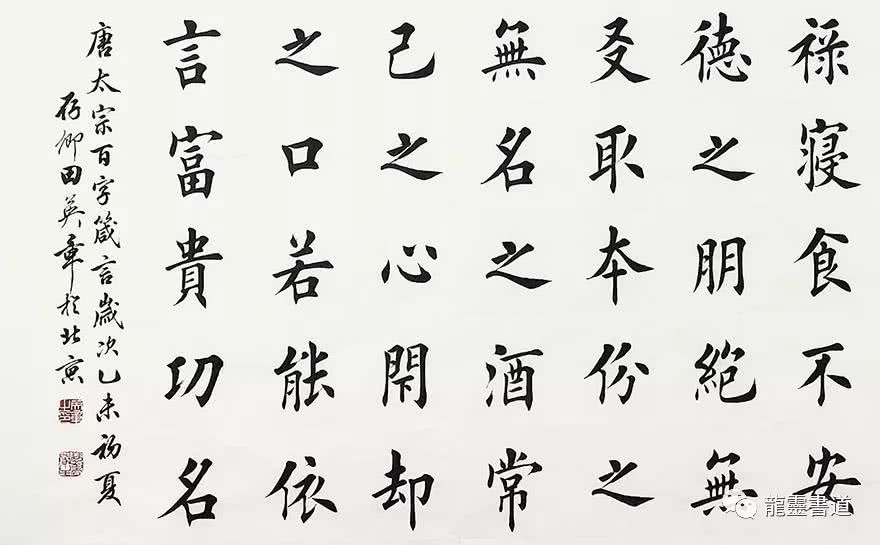 禄寢食不安
德之朋絶無
友取本份之
無名之酒常
己之心閇却
之口若能依
言富貴功名
唐太宗百字箴言歲次乙未初夏
存卿田英章於北京
龍靈書道